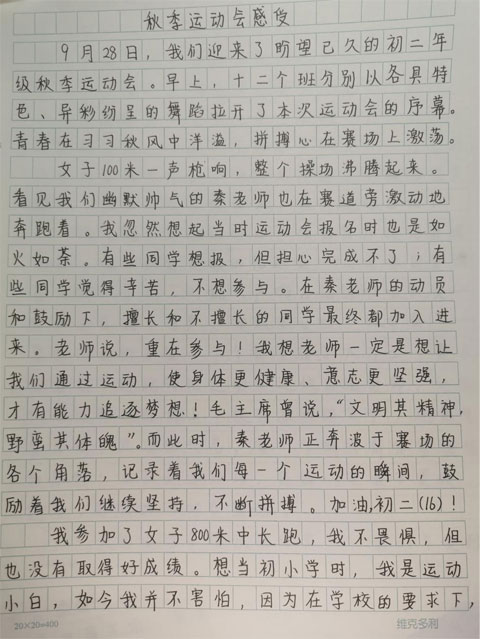 秋季运动会感受
9月28日，我们迎来了盼望已久的初二年
级秋季运动会。早上，十二个班分别以各具特
色、异彩纷呈的舞蹈拉开了本次运动会的序幕。
青春在习习秋风中洋溢，拼搏心在赛场上激荡。
女子100米一声枪响，整个操场沸腾起来。
看见我们幽默帅气的秦老师也在赛道旁激动地
奔跑着。我忽然想起当时运动会报名时也是如
火如荼。有些同学想报，但担心完成不了；有
些同学觉得辛苦，不想参与。在秦老师的动员
和鼓励下，擅长和不擅长的同学最终都加入进
来。老师说，重在参与！我想老师一定是想让
我们通过运动，使身体更健康、意志更坚强，
才有能力追逐梦想！毛主席曾说，“文明其精神，
野蛮其体魄”。而此时，秦老师正奔波于赛场的
各个角落，记录着我们每一个运动的瞬间，鼓
励着我们继续坚持，不断拼搏。加油,初二(16)！
我参加了女子800米中长跑，我不畏惧，但
也没有取得好成绩。想当初小学时，我是运动
小白，如今我并不害怕，因为在学校的要求下，
20×20=400 维克多利